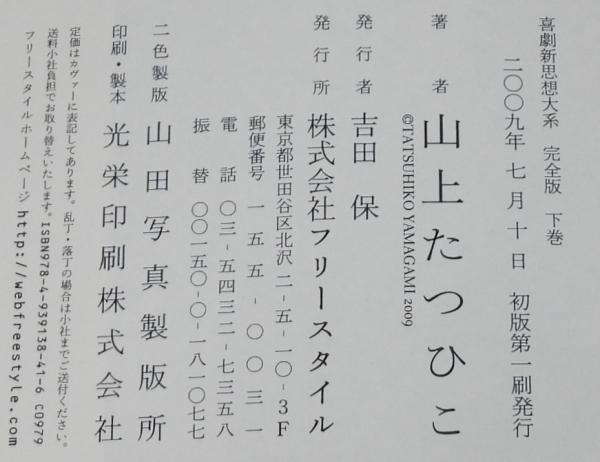 喜劇新思想大系 完全版 下巻
二〇〇九年 七月十日 初版第一刷発行
著者 山上たつひこ
©TATSUHIKO YAMAGAMI 2009
発行者 吉田 保
発行所 株式会社フリースタイル
東京都世田谷区北沢 二-五-一〇-3F
郵便番号 一五五-〇〇三一
電話 〇三-五四三二-七三五八
振替 〇〇一五〇-〇-一八一〇七七
二色製版 山田写真製版所
印刷・製本 光栄印刷株式会社
定価はカヴァーに表記してあります。乱丁・落丁の場合は小社までご送付ください。
送料小社負担でお取り替えいたします。ISBN978-4-939138-41-6 C0979
フリースタイルホームページ http://webfreestyle.com